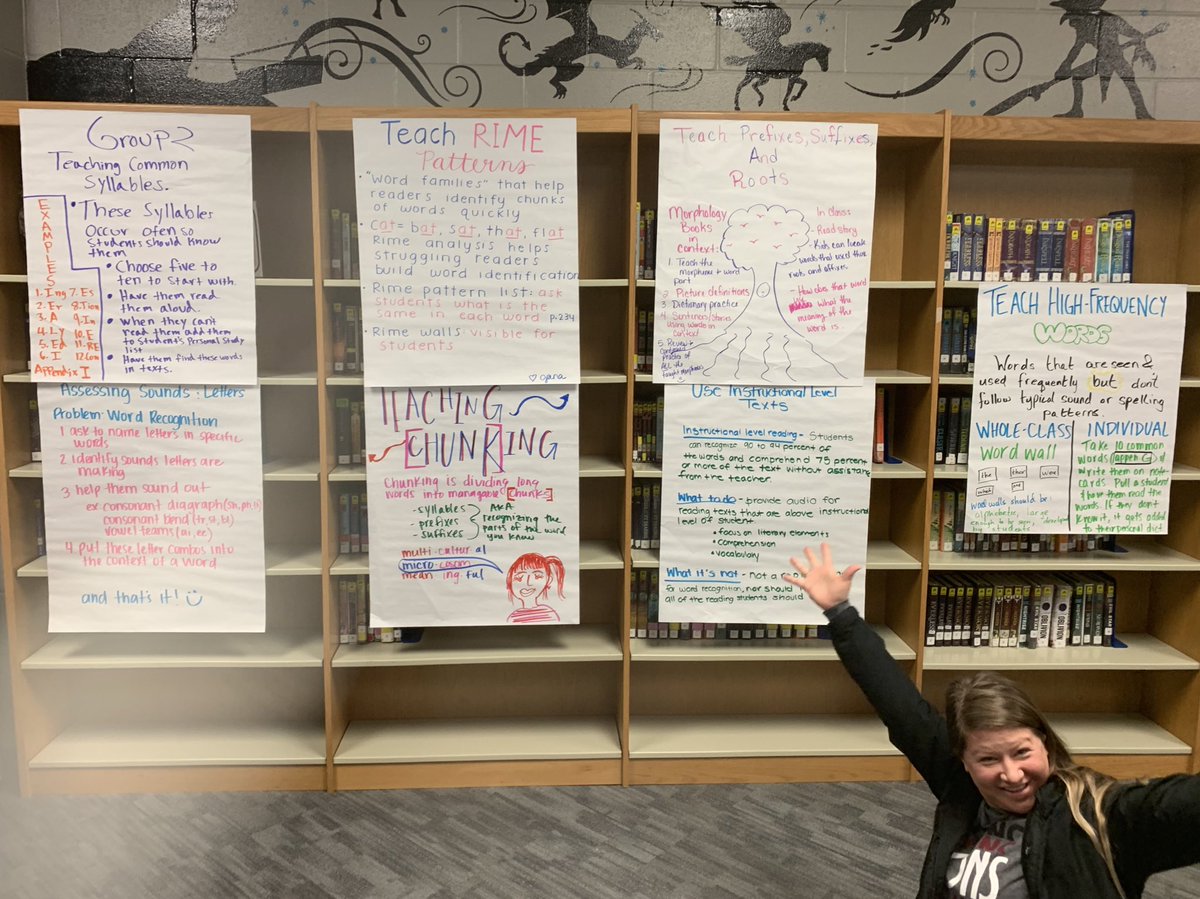 Group 2
Teaching Common
Syllables.
EXAMPLES
1. Ing 7. Es
2. Er 8. Tion
3. A 9. In
4. Ly 10. E
5. Ed 11. RE
6. I 12 Con
Appendix I
• These Syllables
Occur often so
Students should know
them
• Choose five to
ten to start with.
• Have them read
them aloud.
• When they can't
read them add them
to Student's Personal Study
list
• Have them find these words
in texts.
Teach RIME
Patterns
• "Word families" that help
readers identify chunks
of words quickly
• Cat = bat, sat, that, flat
• Rime analysis helps
struggling readers
build word identification
• Rime pattern list: ask
students what is the
same in each word p.234
• Rime walls: visible for
students
Teach Prefixes, Suffixes,
And
Roots
Morphology
Books
in
context:
1. Teach the
morpheme + word
part
2. Picture definitions
3. Dictionary practice
4. Sentences/Stories
using words in
context
5. Review +
continued
practice of
ALL the
taught morphemes
In Class:
- Read story
- Kids can look
words that used those
roots and affixes.
- How does that word
what the
meaning of the
word is.
TEACH HIGH-FREQUENCY
WORDS
Words that are seen &
used frequently but don't
follow typical sound or spelling
patterns.
WHOLE-CLASS
word wall
the
their
were
which
and
word walls should be:
alphabetic, large
enough to be seen, develop
by students
INDIVIDUAL
Take 10 common
words (appen G) &
write them on note
cards. Pull a student
& have them read the
words. If they don't
know it, it gets added
to their personal dict
Assessing Sounds : Letters
Problem: Word Recognition
1 ask to name letters in specific
words
2 identify sounds letters are
making
3 help them sound out
ex: consonant diagraph (sh, ph, th)
consonant blend (tr, st, bl)
vowel teams (ai, ee)
4 put these letter combos into
the context of a word
and that's it!
TEACHING
CHUNKING
Chunking is dividing long
words into manageable [chunks]
- syllables
- prefixes
- suffixes
AKA
recognizing the
parts of the word
you know
multi-cultur al
micro-cosom
mean ing ful
Use Instructional Level
Texts
Instructional level reading - Students
can recognize 90 to 94 percent of
the words and comprehend 75 percent
or more of the text without assistance
from the teacher.
What to do - provide audio for
reading texts that are above instructional
level of student
• focus on literary elements
• comprehension
• vocabulary
What it's not - not a
for word recognition, nor should
all of the reading students should